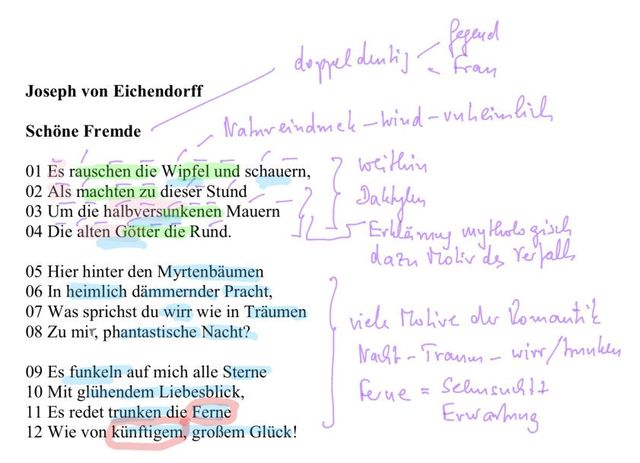 doppeldeutig
Gegend
Frau
Joseph von Eichendorff
Schöne Fremde
Natureindruck – Wind – unheimlich
01 Es rauschen die Wipfel und schauern,
02 Als machten zu dieser Stund
03 Um die halbversunkenen Mauern
04 Die alten Götter die Rund.
weithin
Daktylen
Erklärung mythologisch
dazu Motiv des Verfalls
05 Hier hinter den Myrtenbäumen
06 In heimlich dämmernder Pracht,
07 Was sprichst du wirr wie in Träumen
08 Zu mir, phantastische Nacht?
09 Es funkeln auf mich alle Sterne
10 Mit glühendem Liebesblick,
11 Es redet trunken die Ferne
12 Wie von künftigem, großem Glück!
viele Motive der Romantik
Nacht – Traum – wirr/trunken
Ferne = Sehnsucht
Erwartung